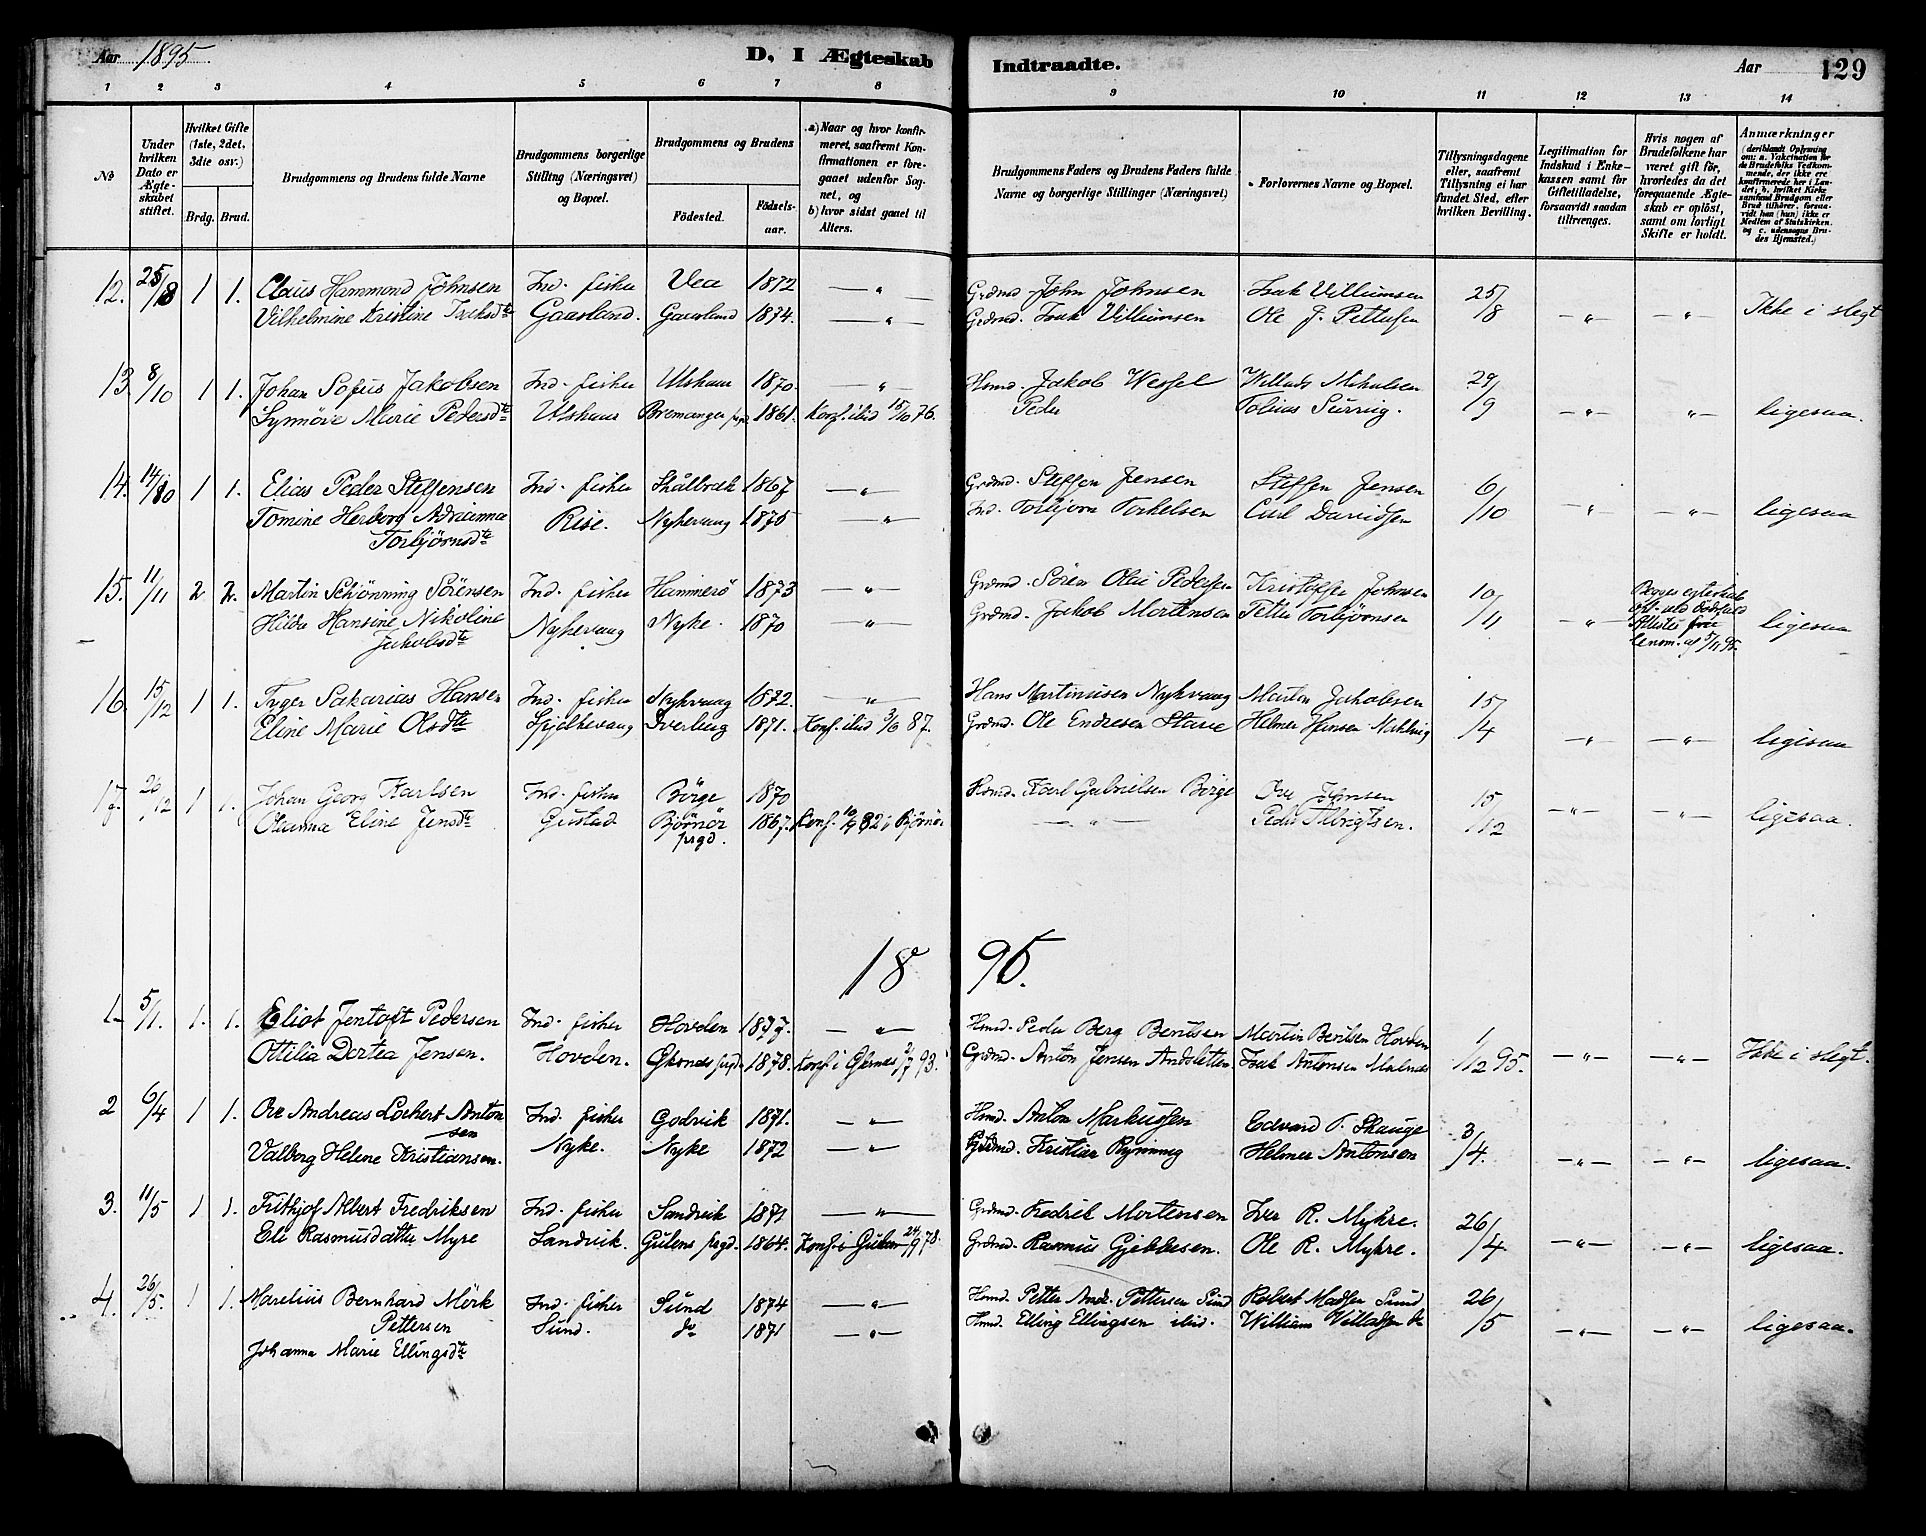 Aar 1895
D, I Ægteskab Indtraadte.
Aar
129
1 2 3 4 5 6 7 8 9 10 11 12 13 14
No
Under hvilken Dato er Ægteskabet stiftet.
Hvilket Gifte (1ste, 2det, 3die osv.)
Brdg. Brud.
Brudgommens og Brudens fulde Navne
Brudgommens borgerlige Stilling (Næringsvei) og Bopæl.
Brudgommens og Brudens
Fødested. Fødselsaar.
a) Naar og hvor konfirmeret, saafremt Konfirmationen er foregaaet udenfor Sognet, og
b) hvor sidst gaaet til Alters.
Brudgommens Faders og Brudens Faders fulde Navne og borgerlige Stillinger (Næringsvei)
Forlovernes Navne og Bopæl.
Tillysningsdagene eller, saafremt Tillysning ei har fundet Sted, efter hvilken Bevilling.
Legitimation for Indskud i Enkekassen samt for Giftetilladelse, forsaavidt saadan tiltrænges.
Hvis nogen af Brudefolkene har været gift før, hvorledes da det foregaaende Ægteskab er opløst, samt om lovligt Skifte er holdt.
Anmærkninger (deriblandt Oplysning om: a. Vakcination for de Brudefolks Vedkommende, der ikke ere konfirmerede her i Landet; b. hvilket Kirkesamfund Brudgom eller Brud tilhører, forsaavidt han (hun) ikke er Medlem af Statskirken, og c. udensogns Brudes Hjemsted.)
12. 25/8 1 1. Claus Hammond Johnsen Ind. fisker Vea 1872 — " — Grdmd. John Johnsen Isak Villumsen 25/8 — " — — " — Ikke i slegt
Vilhelmine Kristine Isaksdtr Gaasland. Gaasland 1874. — " — Grdmd. Isak Villumsen Ole J. Pettersen
13. 8/10 1 1. Johan Sofus Jakobsen Ind. fisker Ulshavn 1870. — " — Hsmd. Jakob Wessel 29/9 — " — — " — ligesaa.
Synnøve Marie Pedersdtr Ulshavn Bremanger prgd. 1861. Konf. ibid 15/10 76. Peder Tobias
14. 14/10 1 1. Elias Peder Steffensen Ind. fisker 1867 — " — Grdmd. Steffen Jensen Steffen Jensen 6/10 — " — — " — ligesaa
Tomine Herborg Adrianna Rise. Nykevaag 1875 — " — Ind. Torbjørn Torkelsen Carl Davidsen
Torbjørnsdtr
15. 11/11 2 2. Martin Schønning Sørensen Ind. fisker Hammerø 1873 — " — Grdmd. Søren Olai Pedersen Kristoffer Johnsen 10/11 — " — Begges egteskab opl. ved dødsfald ligesaa
Hilda Hansine Nikoline Nykevaag Nyke. 1870 — " — Grdmd. Jakob Mortensen Petter Torbjörnsen
Jakobsdtr
16. 15/12 1 1. Sakarias Hansen Ind. fisker Nykvaag 1872. — " — Hans Martinusen Nykvaag Jakobsen 15/4 — " — — " — ligesaa
Eline Marie Olsdtr 1871. Konf. ibid 3/6 87. Grdmd. Ole Endresen
17. 26/12 1 1. Johan Georg Karlsen Ind. fisker Börge 1870 Hsmd. Karl Gabrielsen Börge Jensen 15/12 — " — — " — ligesaa.
Olianna Eline Jensdtr Gustad Bjørnør prgd. 1867. Konf. 82 i Bjørnør — " — Peder
1896.
1 5/1. 1. 1. Eliot Jentoft Pedersen Ind. fisker Hovden 1877. — " — Hsmd. Peder Berg Berntsen Martin Berntsen Hovden 1/12 95. — " — — " — Ikke i slegt.
Ottilia Dortea Jensen. Hovden. prgd 1878. Grdmd. Anton Jensen Isak Antonsen Malnes
2 6/4 1 1. Ove Andreas Lorkert Antonsen Ind. fisker Godvik 1871. — " — Hsmd. Anton Markussen Edvard P. Skauge 3/4. — " — — " — ligesaa.
Valborg Helene Kristiansen. Nyke. Nyke 1872 — " — Grdmd. Kristian Rynning Helmer Antonsen
3. 11/5 1 1. Frithjof Albert Fredriksen Ind. fisker Sandvik 1871 — " — Grdmd. Fredrik Mortensen Iver R. Myhre. 26/4 — " — — " — ligesaa.
Eli Rasmusdatter Myre Sandvik. Gulens prgd. 1864. Konf. i Gulen 24/9 78. Grdmd. Rasmus Gjebbesen. Ole R. Myhre.
4. 26/5. 1 1. Marelius Bernhard Mörk Ind. fisker Sund 1874 — " — Hsmd. Petter Andr. Pettersen Sund Robert Madsen Sund 26/5 — " — — " — ligesaa.
Pettersen Sund. do 1871 — " — Hsmd. Elling Ellingsen ibid. William Villadsen do
Johanna Marie Ellingsdtr